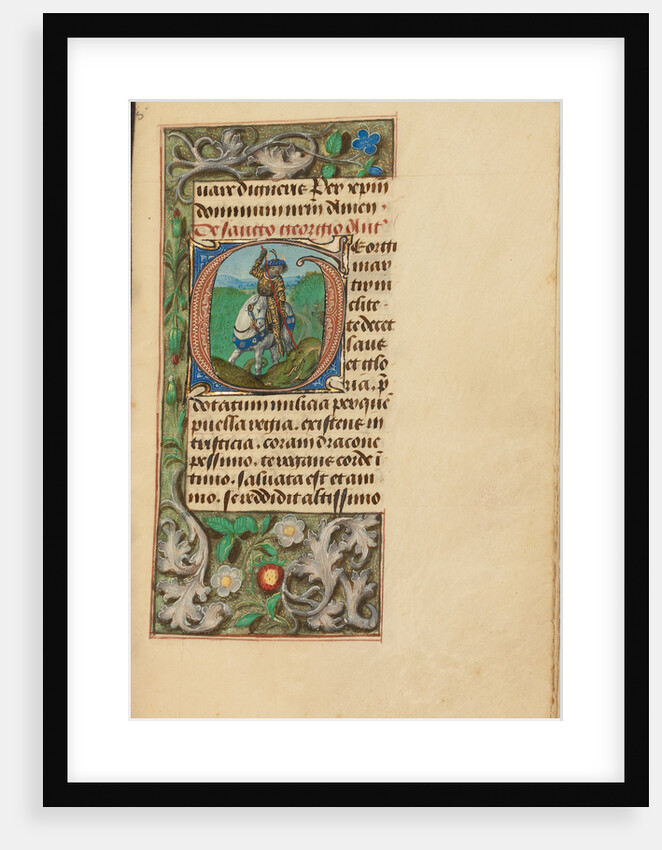 uari digneris Per xpm
dominum nrm Amen.
De sancto georgio Ant
Georgi
mar
tir in
clite.
te decet
laus
et glo
ria. p
dotatum milicia per que
puella regia. existens in
tristicia. coram dracone
pessimo. te rogans corde i
timo. saluata est et ani
mo. se reddidit altissimo